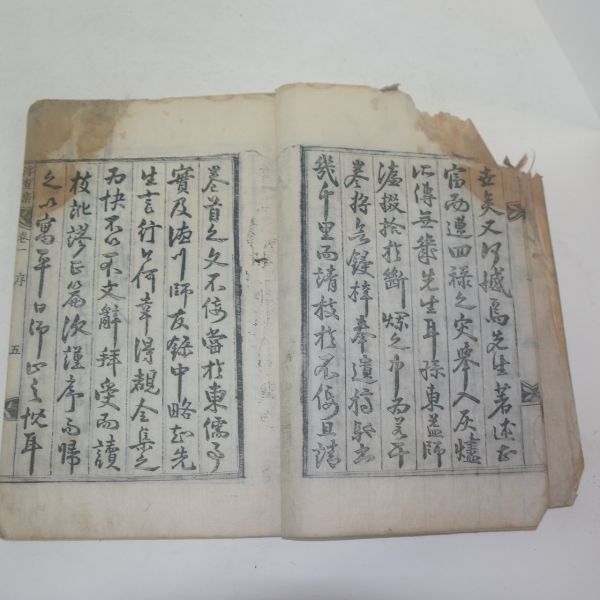 世矣又何憾焉先生著述甚
富而遭回祿之灾擧入灰燼
所傳無幾先生耳孫東益師
濂掇拾於斷爛之中爲若干
卷將鋟梓奉遺稿
幾千里而請校於不佞且請
卷首之文不佞嘗於東儒事
實及德川師友錄中略知先
生言行何幸得覩全集之
爲快不以不文辭拜受而讀
校訛謬正篇次謹序而歸
之以寓平日仰止之忱耳
卷一 序 五